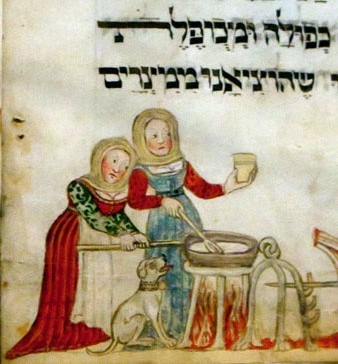 כפולה ומכופלת
שהוציאנו ממצרים